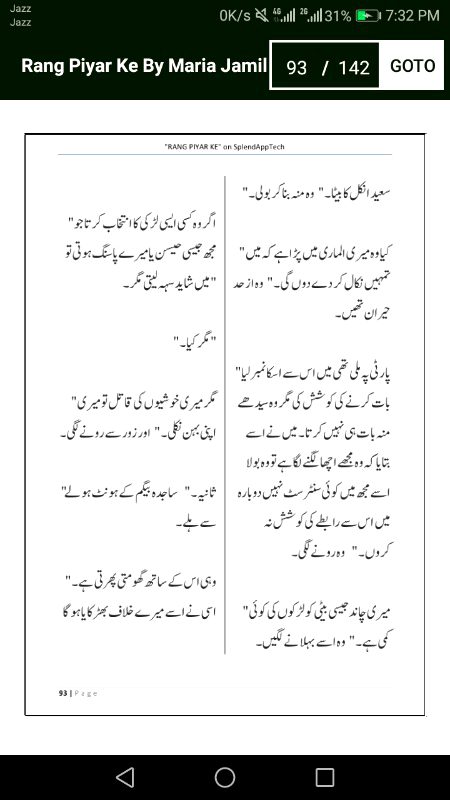 Jazz
Jazz
0K/s 4G 2G 31% 7:32 PM
Rang Piyar Ke By Maria Jamil 93 / 142 GOTO
"RANG PIYAR KE" on SplendAppTech
سعید انکل کا بیٹا۔" وہ منہ بنا کر بولی۔"
کیا وہ میری الماری میں پڑا ہے کہ میں"
تمہیں نکال کر دے دوں گی۔" وہ از حد
حیران تھیں۔
پارٹی پہ ملی تھی میں اس سے اسکا نمبر لیا"
بات کرنے کی کوشش کی مگر وہ سیدھے
منہ بات ہی نہیں کرتا۔ میں نے اسے
بتایا کہ وہ مجھے اچھا لگنے لگا ہے تو وہ بولا
اسے مجھ میں کوئی سنٹرسٹ نہیں دوبارہ
میں اس سے رابطے کی کوشش نہ
کروں۔" وہ رونے لگی۔
میری چاند جیسی بیٹی کو لڑکوں کی کوئی"
کمی ہے۔" وہ اسے بہلانے لگیں۔
اگر وہ کسی ایسی لڑکی کا انتخاب کرتا جو"
مجھ جیسی حیسن یا میرے پاسنگ ہوتی تو
"میں شاید سہہ لیتی مگر۔
"مگر کیا۔"
مگر میری خوشیوں کی قاتل تو میری"
اپنی بہن نکلی۔" اور زور سے رونے لگی۔
ثانیہ۔" ساجدہ بیگم کے ہونٹ ہولے"
سے ہلے۔
وہی اس کے ساتھ گھومتی پھرتی ہے۔"
اسی نے اسے میرے خلاف بھڑکایا ہو گا
93 | Page